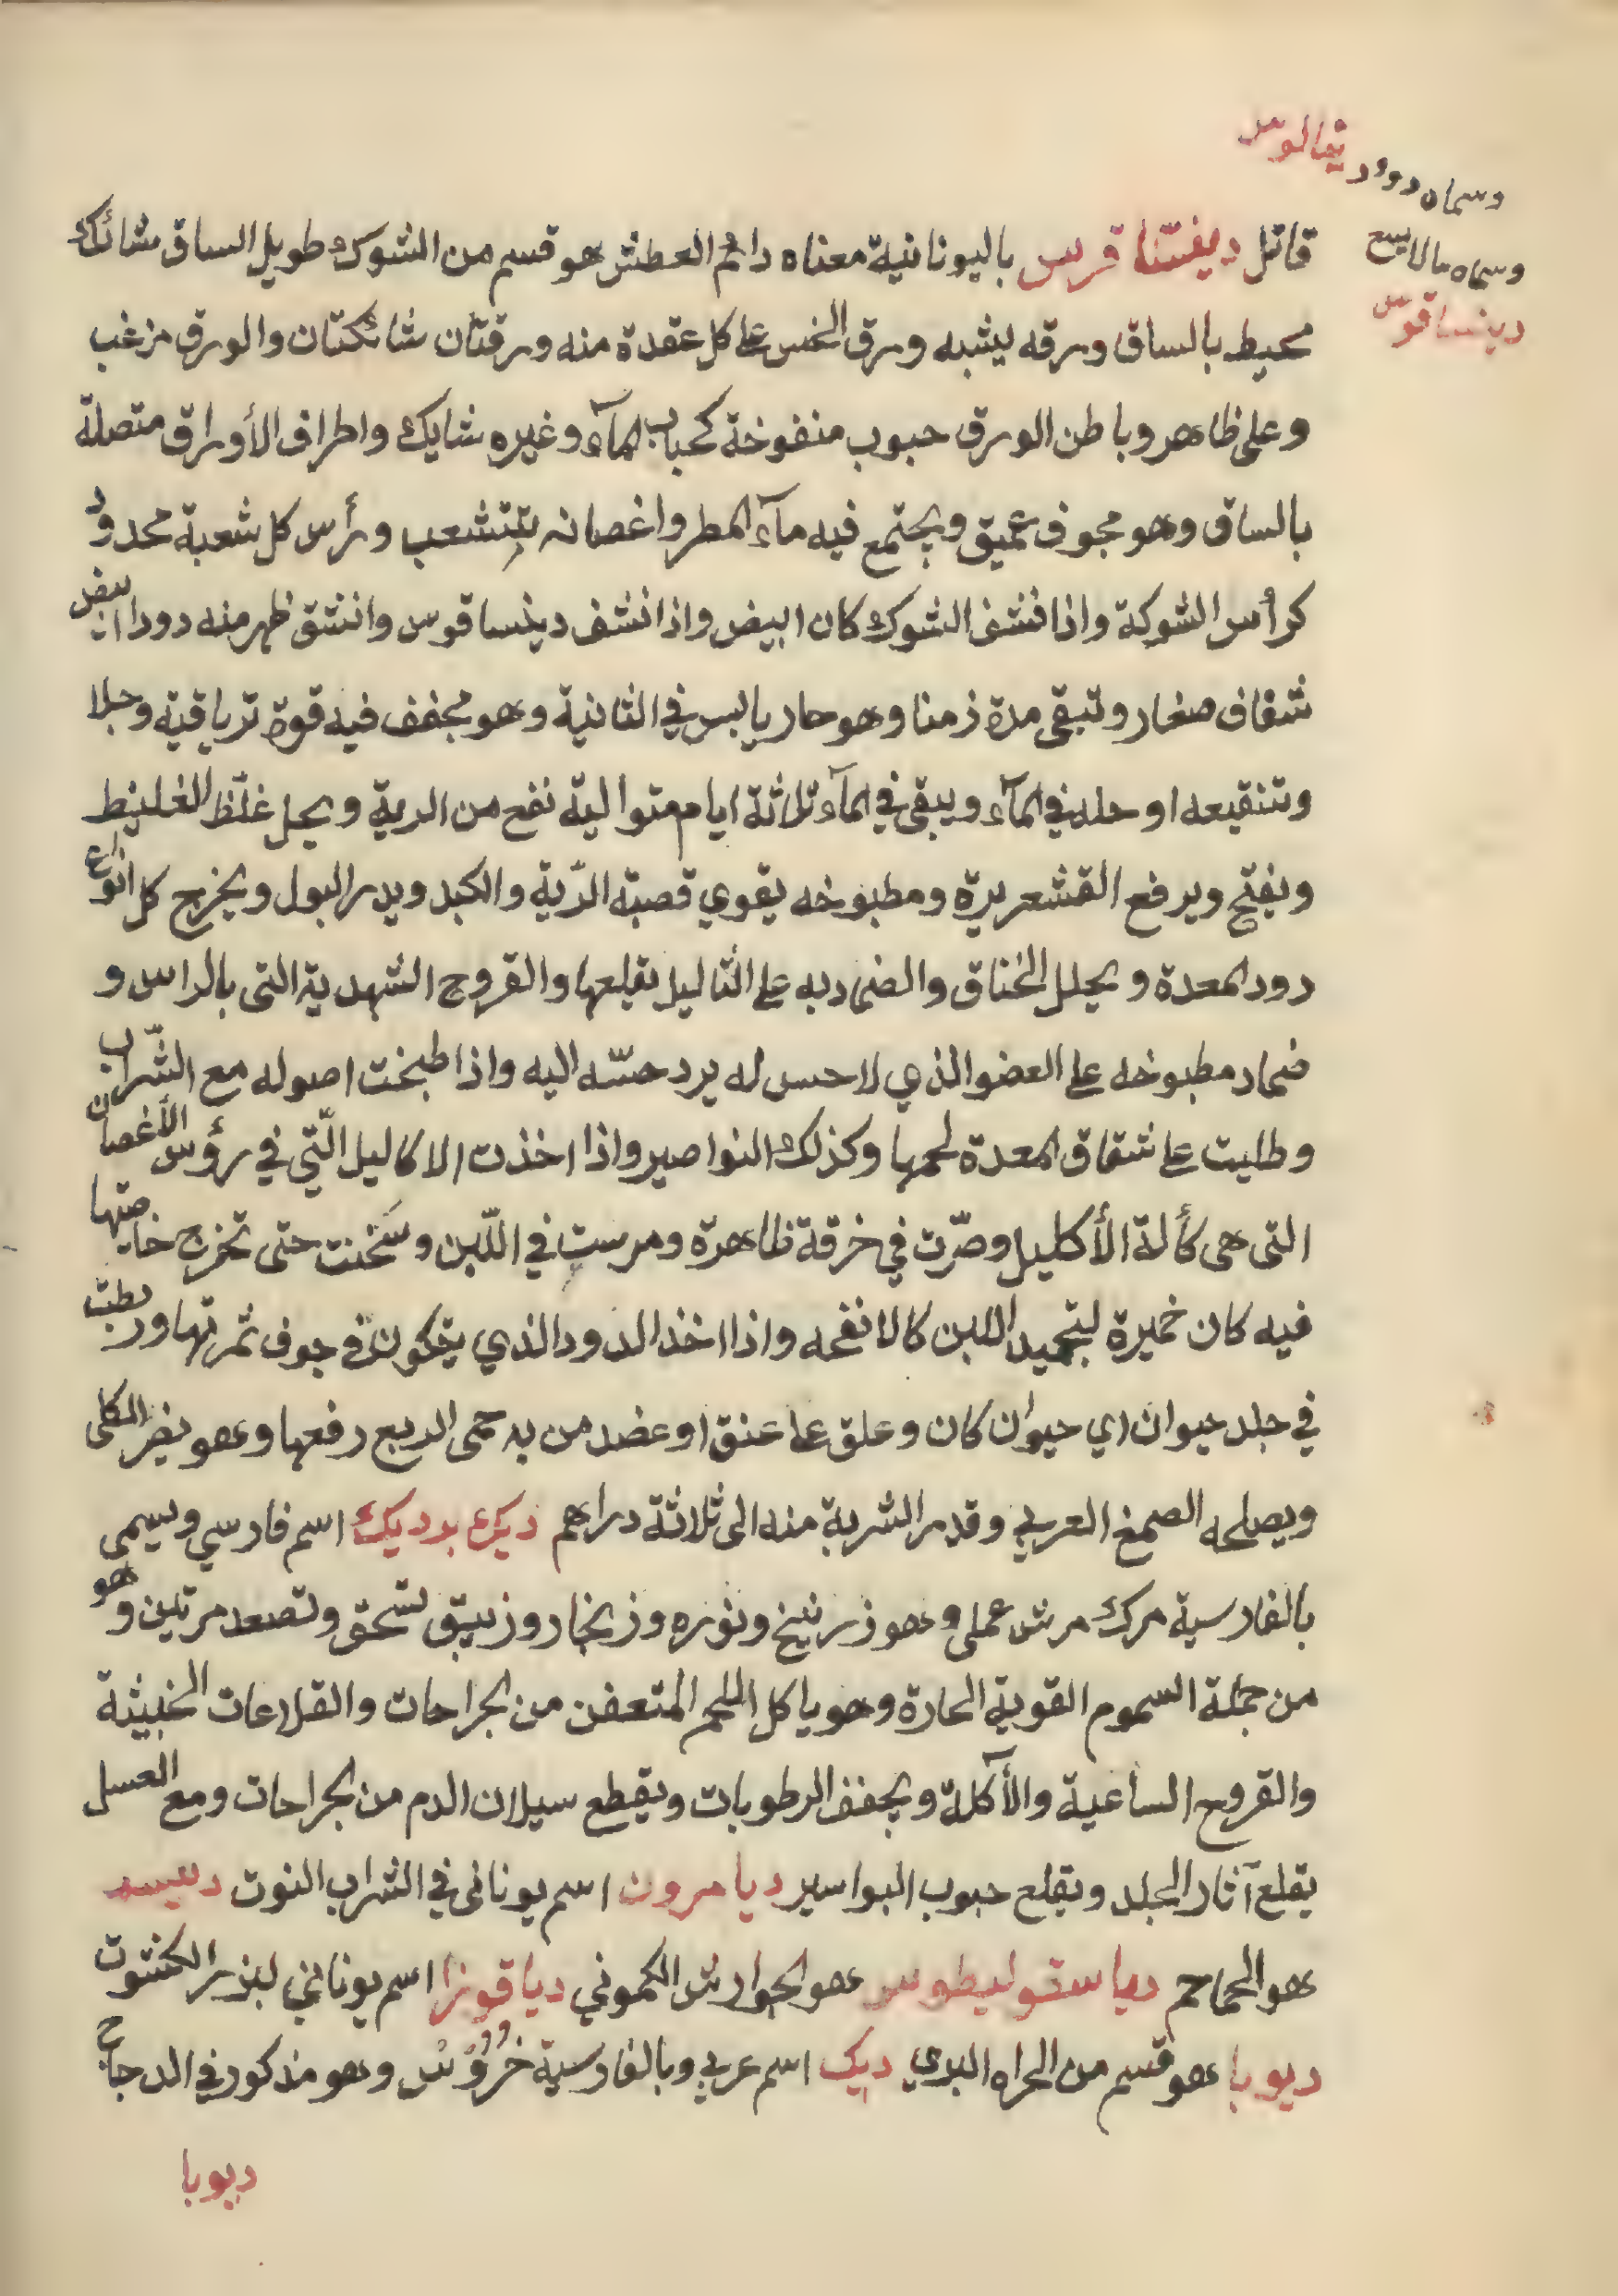 وسماه دوو ديقالوس
وسماه سالاسع
دينساقوس
قاتل ديفستا قرس باليونانية معناه دائم العطش هو قسم من الشوك طويل الساق شائك
محيط بالساق ورقه يشبه ورق الخس على كل عقدة منه ورقتان شائكتان والورق مزغب
وعلى ظاهر وباطن الورق حبوب منفوخة كحباب المآء وغيره شايك واطراف الأوراق متصلة
بالساق وهو مجوف عميق ويجتمع فيه مآء المطر واغصانه يتشعب ورأس كل شعبة محدود
كرأس الشوكة واذا نشف الشوك كان ابيض واذا نشف دينساقوس وانشق ظهر منه دود ابيض
شفاف صغار وتبقى مدة زمنا وهو حار يابس في الثانية وهو مجفف فيه قوة ترياقية وجلا
وتنقيعه او حله في المآء ويبقى في المآء ثلاثة ايام متوالية نفع من الرية ويحل غلظ الغليظ
ويفتح ويرفع القشعريرة ومطبوخه يقوي قصبة الرّية والكبد ويدر البول ويخرج كل انواع
دود المعدة ويحلل الخناق والضماد به على الثاليل يقلعها والقروح الشهدية التى بالراس و
ضماد مطبوخه على العضو الذي لا حس له يرد حسّه اليه واذا طبخت اصوله مع الشّراب
وطليت على شقاق المعدة لحمها وكذلك النواصير واذا اخذت الاكاليل الّتي في رؤس الأغصان
التى هى كألة الأكليل وصرّت في خرقة ظاهرة ومرست في اللّبن وسخّنت حتى تخرج خاصتها
فيه كان خميرة لتجميد اللبن كالانفحه واذا اخذ الدود الذي يتكون في جوف ثمرتها وربطت
في جلد حيوان اي حيوان كان وعلق على عنق او عضد من به حمى الربع رفعها وهو يضر الكلى
ويصلحه الصمغ العربي وقدر الشربة منه الى ثلاثة دراهم ديك برديك اسم فارسي ويسمى
بالفارسية مرك مرش عملى وهو زرنيخ ونوره وزنجار وزيبق تسحق وتصعد مرتين وهو
من جملة السموم القوية الحارة وهو ياكل اللحم المتعفن من الجراحات والقلاعات الخبيثة
والقروح الساعية والأكلة ويجفف الرطوبات ويقطع سيلان الدم من الجراحات ومع العسل
يقلع آثار الجلد ويقلع حبوب البواسير ديا مرون اسم يونانى في الشراب التوت
هو الحماحم دياسقوليطوس هو الجوارش الكموني دياقوزا اسم يوناني لبزر الكشوت
ديوبا هو قسم من الحراه البري ديك اسم عربي وبالفارسية خرُوُس وهو مذكور في الدجاج
ديوبا